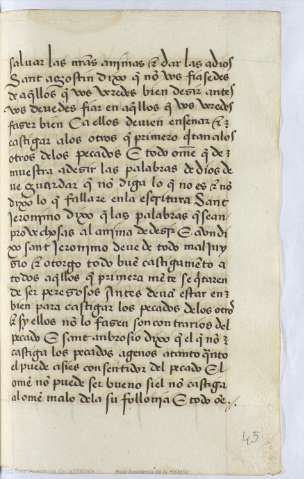 saluar las nr̃as animas & dar las a dios
Sant agostin dixo q̃ nõ vos fiasedes
de aq̃llos q̃ vos veedes bien desir antes
vos deuedes fiar en aq̃llos q̃ vos veedes
faser bien Ca ellos deuen enseñar &
castigar a los otros q̃ primero q̃tan a los
otros de los pecados E todo ome q̃ de
muestra a desir las palabras de dios de
ue guardar q̃ nõ diga lo q̃ no es & nõ
dixo lo q̃ fallare en la escriptura Sant
Jeronimo dixo q̃ las palabras q̃ sean
prouechosas al anima de desir E avn di
xo sant Jeronimo deue de todo
& otorgo todo buẽ castigamẽto a
todos aq̃llos q̃ primera mẽte se q̃taren
de ser peresosos Antes deuẽ estar en
bien para castigar los pecados de los otros
& sy ellos nõ lo fasen son contrarios del
pecado E sant ambrosio dixo q̃ el q̃ nõ
castiga los pecados agenos atanto q̃nto
el puede asi es consentidor del pecado El
ome nõ puede ser bueno si el nõ castiga
al ome malo de la su follonia E todo oe
45